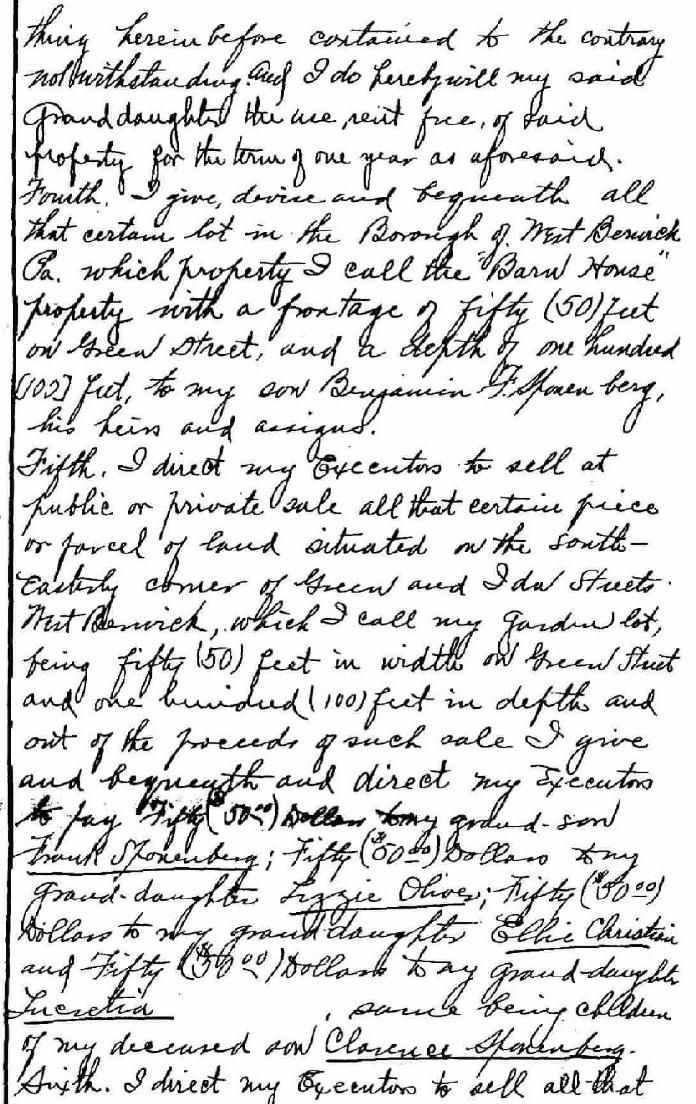 thing hereinbefore contained to the contrary
notwithstanding. And I do hereby will my said
Granddaughter the use, rent free, of said
property for the term of one year as aforesaid.
Fourth. I give, devise and bequeath all
that certain lot in the Borough of West Berwick
Pa. which property I call the "Barn House"
property with a frontage of fifty (50) feet
on Green Street, and a depth of one hundred
[100] feet, to my son Benjamin F. Sponenberg,
his heirs and assigns.
Fifth. I direct my Executors to sell at
public or private sale all that certain piece
or parcel of land situated on the South-
Easterly corner of Green and Ida Streets.
West Berwick, which I call my Garden lot,
being fifty (50) feet in width on Green Street
and one hundred (100) feet in depth and
out of the proceeds of such sale I give
and bequeath and direct my Executors
to pay Fifty ($50.00) Dollars to my grand-son
Frank Sponenberg; Fifty ($50.00) Dollars to my
grand-daughter Lizzie Oliver; Fifty ($50.00)
Dollars to my granddaughter Ellie Christian
and Fifty ($50.00) Dollars to my grand-daughter
Lucretia , same being children
of my deceased son Clarence Sponenberg.
Sixth. I direct my Executors to sell all that